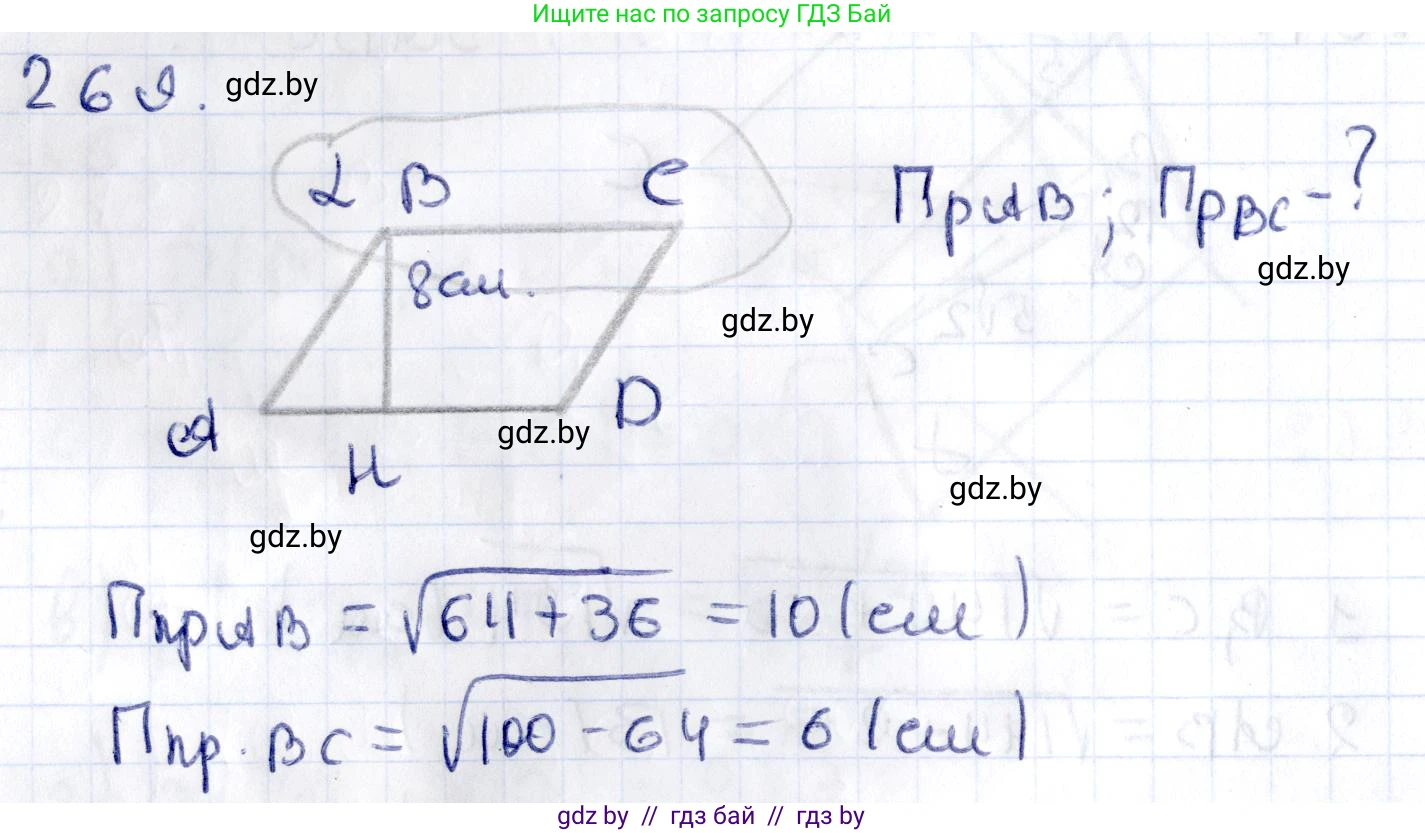 Ищите нас по запросу ГДЗ Бай
269. gdz.by
α B C
Пр AB; Пр BC - ?
8 см.
gdz.by
gdz.by
A
H
gdz.by
D
gdz.by
gdz.by
Ппр AB = √64+36 = 10 (см)
Ппр. BC = √100-64 = 6 (см)
gdz.by // гдз бай // гдз by